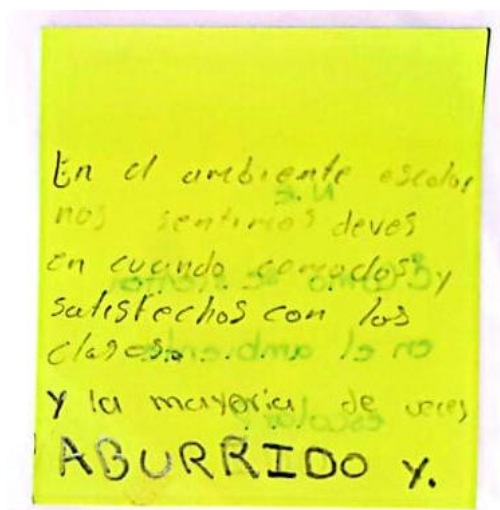 En el ambiente escolar
nos sentimos deves
en cuando comodos y
satisfechos con las
clases.
y la mayoria de veces
ABURRIDO y.